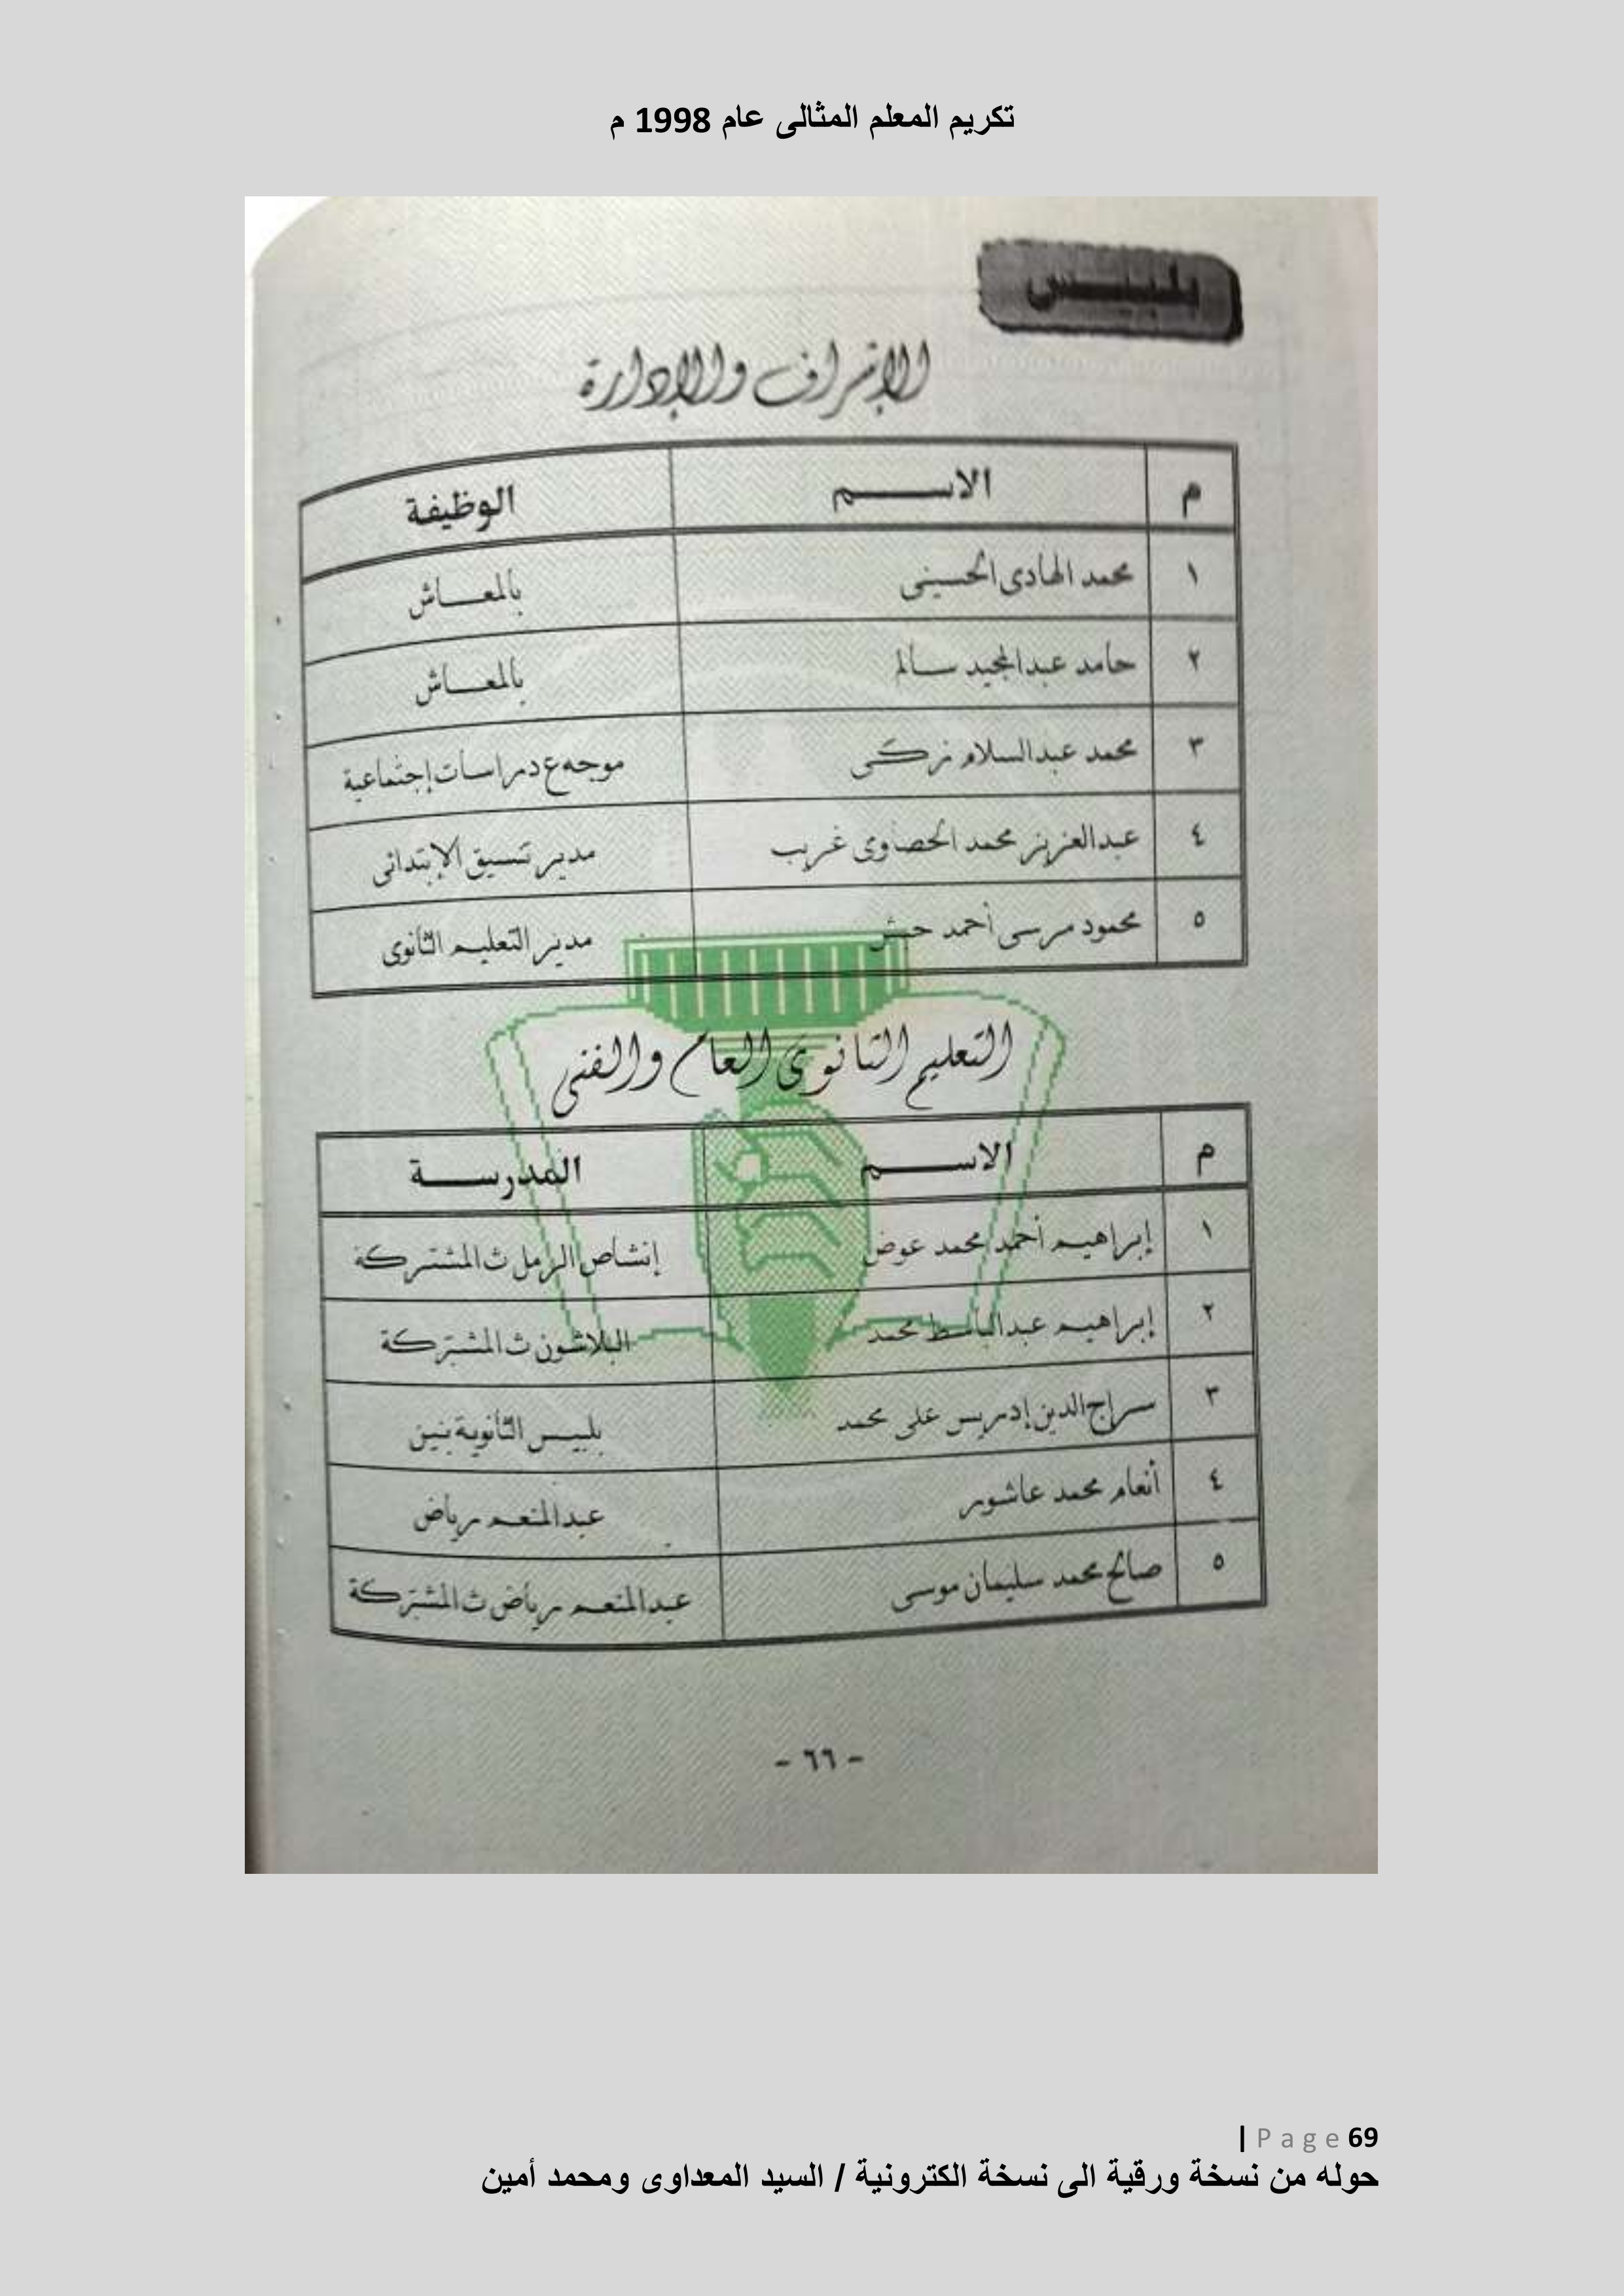 تكريم المعلم المثالى عام 1998 م
بلبيس
الإشراف والإدارة
م الاسم الوظيفة
١ محمد الهادى الحسينى بالمعاش
٢ حامد عبدالمجيد سالم بالمعاش
٣ محمد عبدالسلام زكى موجه ع دراسات إجتماعية
٤ عبدالعزيز محمد الحصاوى غريب مدير تنسيق الإبتدائى
٥ محمود مرسى أحمد حبش مدير التعليم الثانوى
التعليم الثانوى العام والفنى
م الاسم المدرسة
١ إبراهيم أحمد محمد عوض إنشاص الرمل ث المشتركة
٢ إبراهيم عبدالباسط محمد البلاشون ث المشتركة
٣ سراج الدين إدريس على محمد بلبيس الثانوية بنين
٤ أنعام محمد عاشور عبدالمنعم رياض
٥ صالح محمد سليمان موسى عبدالمنعم رياض ث المشتركة
- ٦٦ -
| Page 69
حوله من نسخة ورقية الى نسخة الكترونية / السيد المعداوى ومحمد أمين